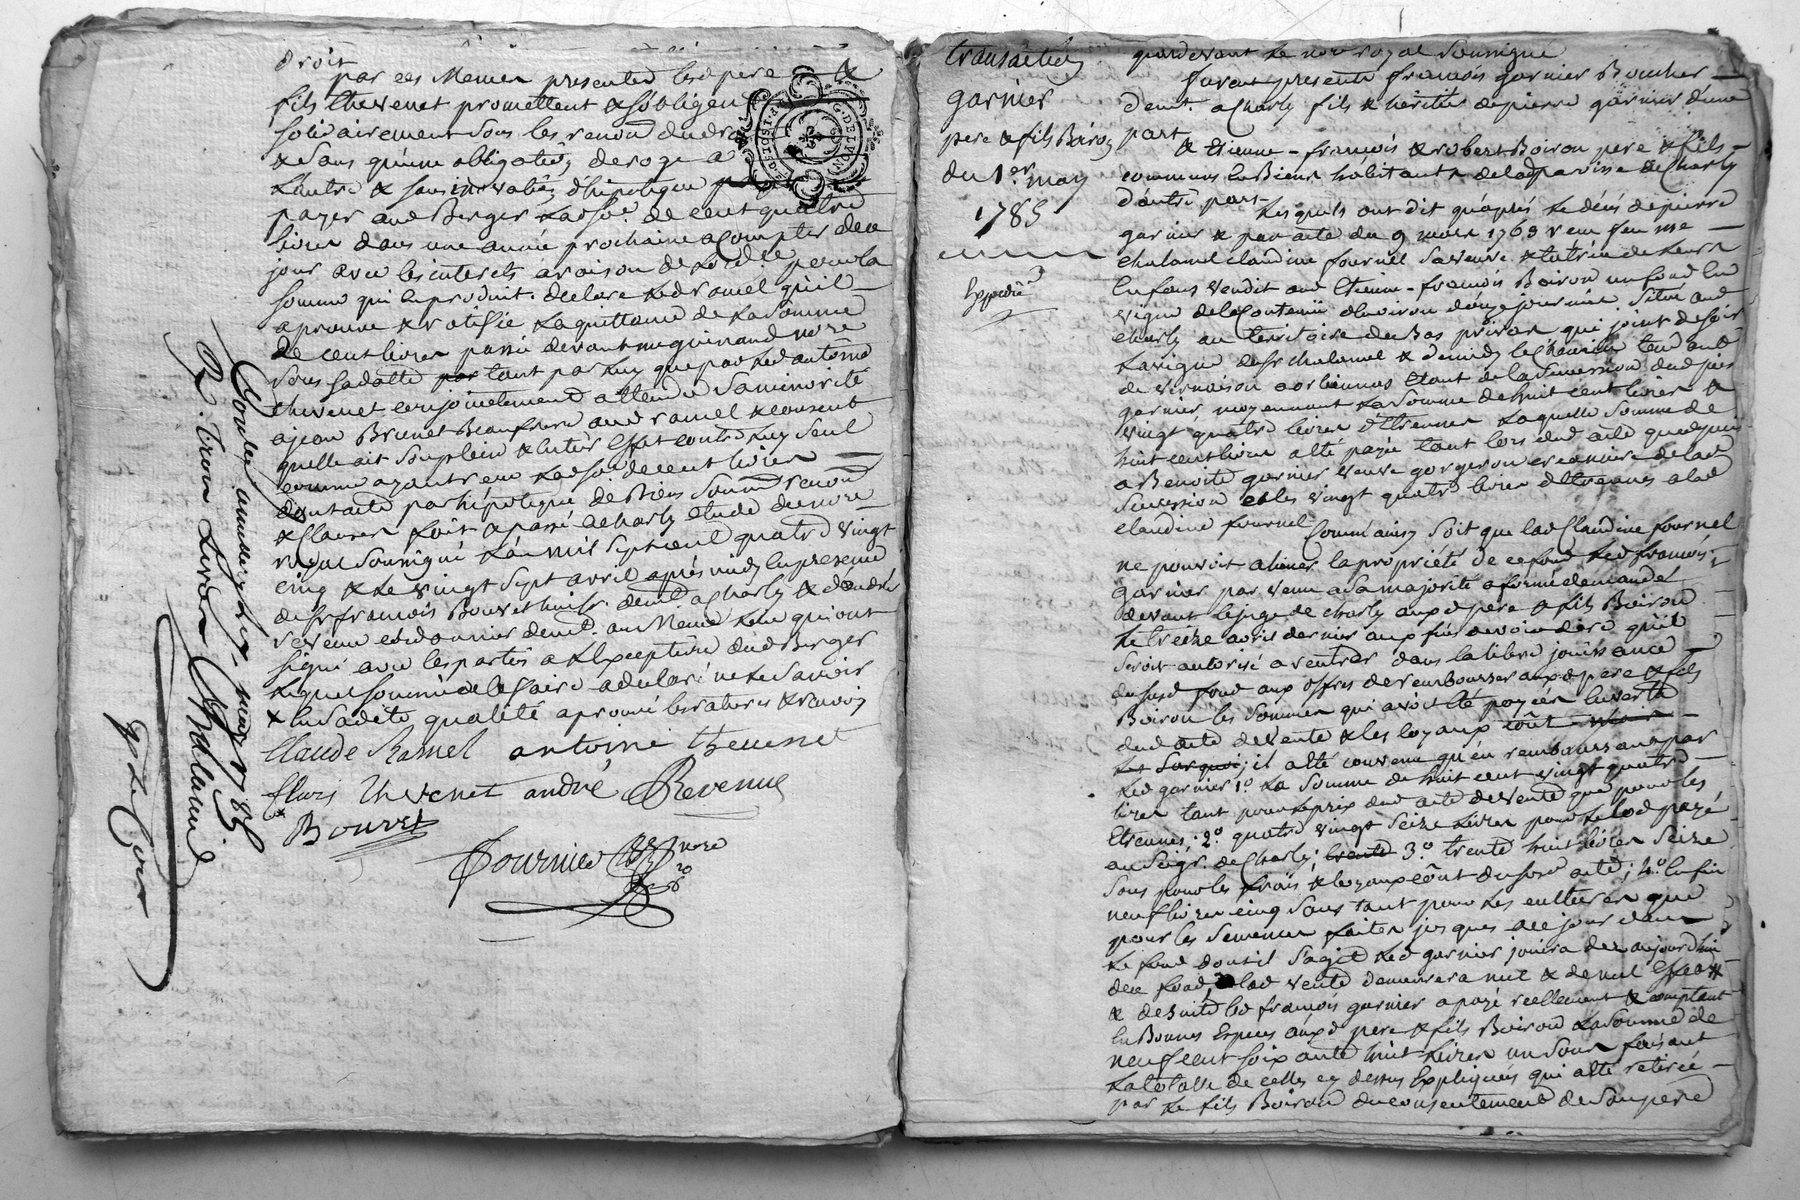 droit
par ces Memes presentes lesd pere &
fils thevenet promettent & sobligent
solidairement sous les renond dudroit
& sans qu'une obligation deroge a
Lautre & sans inovation dhipoteque
payer aud Berger Ladse. de cent quatre
livres dans une année prochaine a Compter de ce
jour avec les interets a raison de
somme qui En produit. declare Led ramel quil
aprouve & ratifie La quittance de La somme
de cent livres passé devant me guinand nore
sous sa datte par tant par Luy que par Led antoine
thevenet conjointement attendu sa minorité
a jean Brunet Beaufrere aud ramel & consent
quelle ait son plein & entier Effet contre Luy seul
comme ayant reçu Lad so. de cent livres
dont acte par hipoteque de Biens soum. renond
& Clauses fait & passé a Charly etude du nore
royal soussigné Lan mil sept cent quatre vingt
cinq & Le vingt sept avril après midy En presence
de sr francois Bouvet huissr. demt. a Charly & d'andré
revenu cordonnier demt. au Meme Lieu qui ont
signé avec les parties a L'Exception dud Berger
Lequel sommé de le faire a declaré ne Le savoir
& En sadite qualité aprouvé les ratures & renvois
Claude Ramel antoine thevenet
fleurs thevenet andré Revenu
Bouvet
Fournier nore
Controllé a millery Le 7. may 1785
R. trois Livres
transaction
garnier
pere & fils Boiron
du 1er. may
1785
Expedié
pardevant Le nore royal soussigné
furent presents francois garnier Boucher
demt a Charly fils & heritier de pierre garnier d'une
part
& Etienne-francois & robert Boiron pere & fils
communs En Biens habitants de lad parroisse de Charly
d'autre part
Lesquels ont dit qu'après Le décés de pierre
garnier & par acte du 9 mars 1763 reçu feu me
Chalamel claudine fournel sa veuve & tutrice de leurs
Enfans vendit aud Etienne-francois Boiron un fond En
vigne de la Contenüe d'environ douze journées situé aud
Charly au territoire du Bas privas qui joint de soir
La vigne de sr chalamel & de midy le chemin tendant
de vernaison a orlienas Etant de la succession dud pierre
garnier moyennant La somme de huit cent livres &
vingt quatre livres d'Etrennes Laquelle somme de
huit cent livres a Eté payée tant lors dud acte que depuis
a Benoite garnier veuve gorgeron creanciere de lad
succession & les vingt quatre livres d'Etrennes a lad
claudine fournel
Comm'ainsy soit que lad Claudine fournel
ne pouvoit aliener la propriété de ce fond Led francois
garnier parvenu a sa majorité a formé demande
devant le juge de charly auxd pere & fils Boiron
Le treize avril dernier aux fins de voir dire qu'il
seroit autorisé a rentrer dans la libre jouissance
du susd fond aux offres de rembourser auxd pere & fils
Boiron les sommes qui avoit Eté payées En vertu
dud acte de vente & les loyaux coût
Sur quoi; il a Eté convenu qu'en remboursant par
Led garnier 1o. La somme de huit cent vingt quatre
livres tant pour Le prix dud acte de vente que pour les
Etrennes; 2o. quatre vingt seize livres pour Le lod payé
au seigr. de Charly; trente 3o. trente huit livres seize
sous pour les frais & loyaux coût du susd acte; 4o. Enfin
neuf livres cinq sous tant pour Les cultures que
pour les semences faites jusques a ce jour dans
Le fond dont il s'agit Led garnier jouira des aujourdhui
de ce fond & lad vente demeurera nul & de nul Effet &
& de suite led francois garnier a payé reellement & comptant
En Bonnes Especes auxd pere & fils Boiron La somme de
neuf cent soixante huit Livres un sous faisant
La totalle de celles cy dessus Expliquées qui a Eté retirée
par Le fils Boiron du consentement de son pere